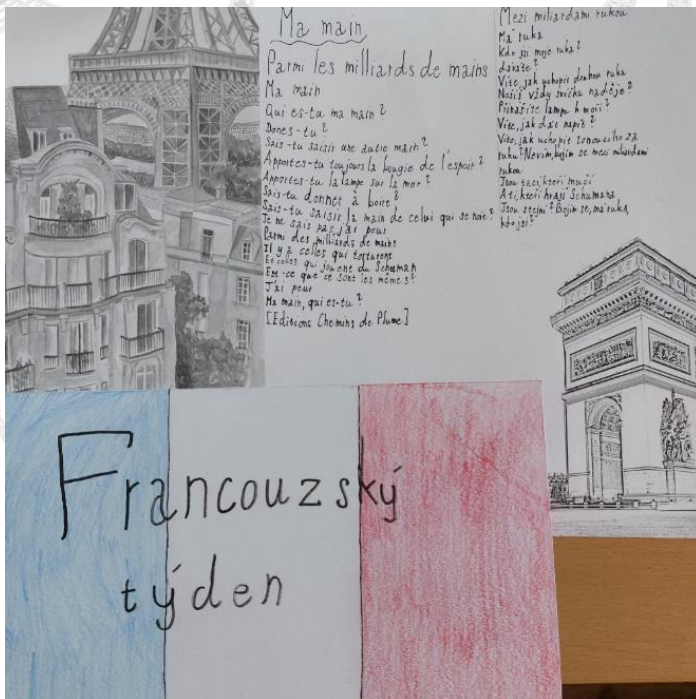 Ma main
Parmi les milliards de mains
Ma main
Qui es-tu ma main?
Dones-tu?
Sais-tu saisir une autre main?
Apportes-tu toujours la bougie de l'espoir?
Apportes-tu la lampe sur la mer?
Sais-tu donner à boire?
Sais-tu saisir la main de celui qui se noie?
Je ne sais pas, j'ai peur
Parmi des milliards de mains
Il y a celles qui torturent
Et celles qui jouent du Schuman
Est-ce que ce sont les mêmes?
J'ai peur
Ma main, qui es-tu?
[Editions Chemins de Plume]
Mezi miliardami rukou
Má ruka
Kdo jsi moje ruko?
dáváte?
Víte, jak uchopit druhou ruku
Nosíš vždy svíčku naděje?
Přinášíte lampu k moři?
Víte, jak dát napít?
Víte, jak uchopit tonoucího za
ruku? Nevím, bojím se mezi miliardami
rukou
Jsou tací, kteří mučí
A ti, kteří hrají Schumana
Jsou stejní? Bojím se, má ruko,
kdo jsi?
Francouzský
týden